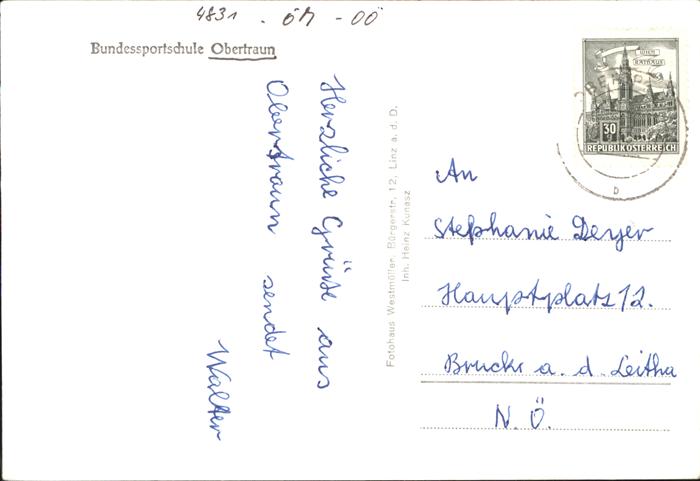 4831 . ÖM - OÖ
Bundessportschule Obertraun
Herzliche Grüße aus
Obertraun sendet
Walter
Fotohaus Westmüller, Bürgerstr. 12, Linz a. d. D.
Inh. Heinz Kunasz
WIEN
RATHAUS
30
REPUBLIK ÖSTERREICH
b
An
Stephanie Deyer
Hauptplatz 12.
Bruck a. d. Leitha
N. Ö.